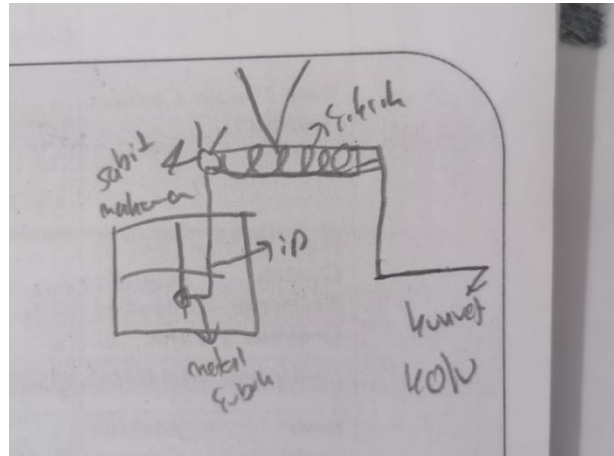 çıkrık
sabit
makara
ip
metal
çubuk
kuvvet
kolu